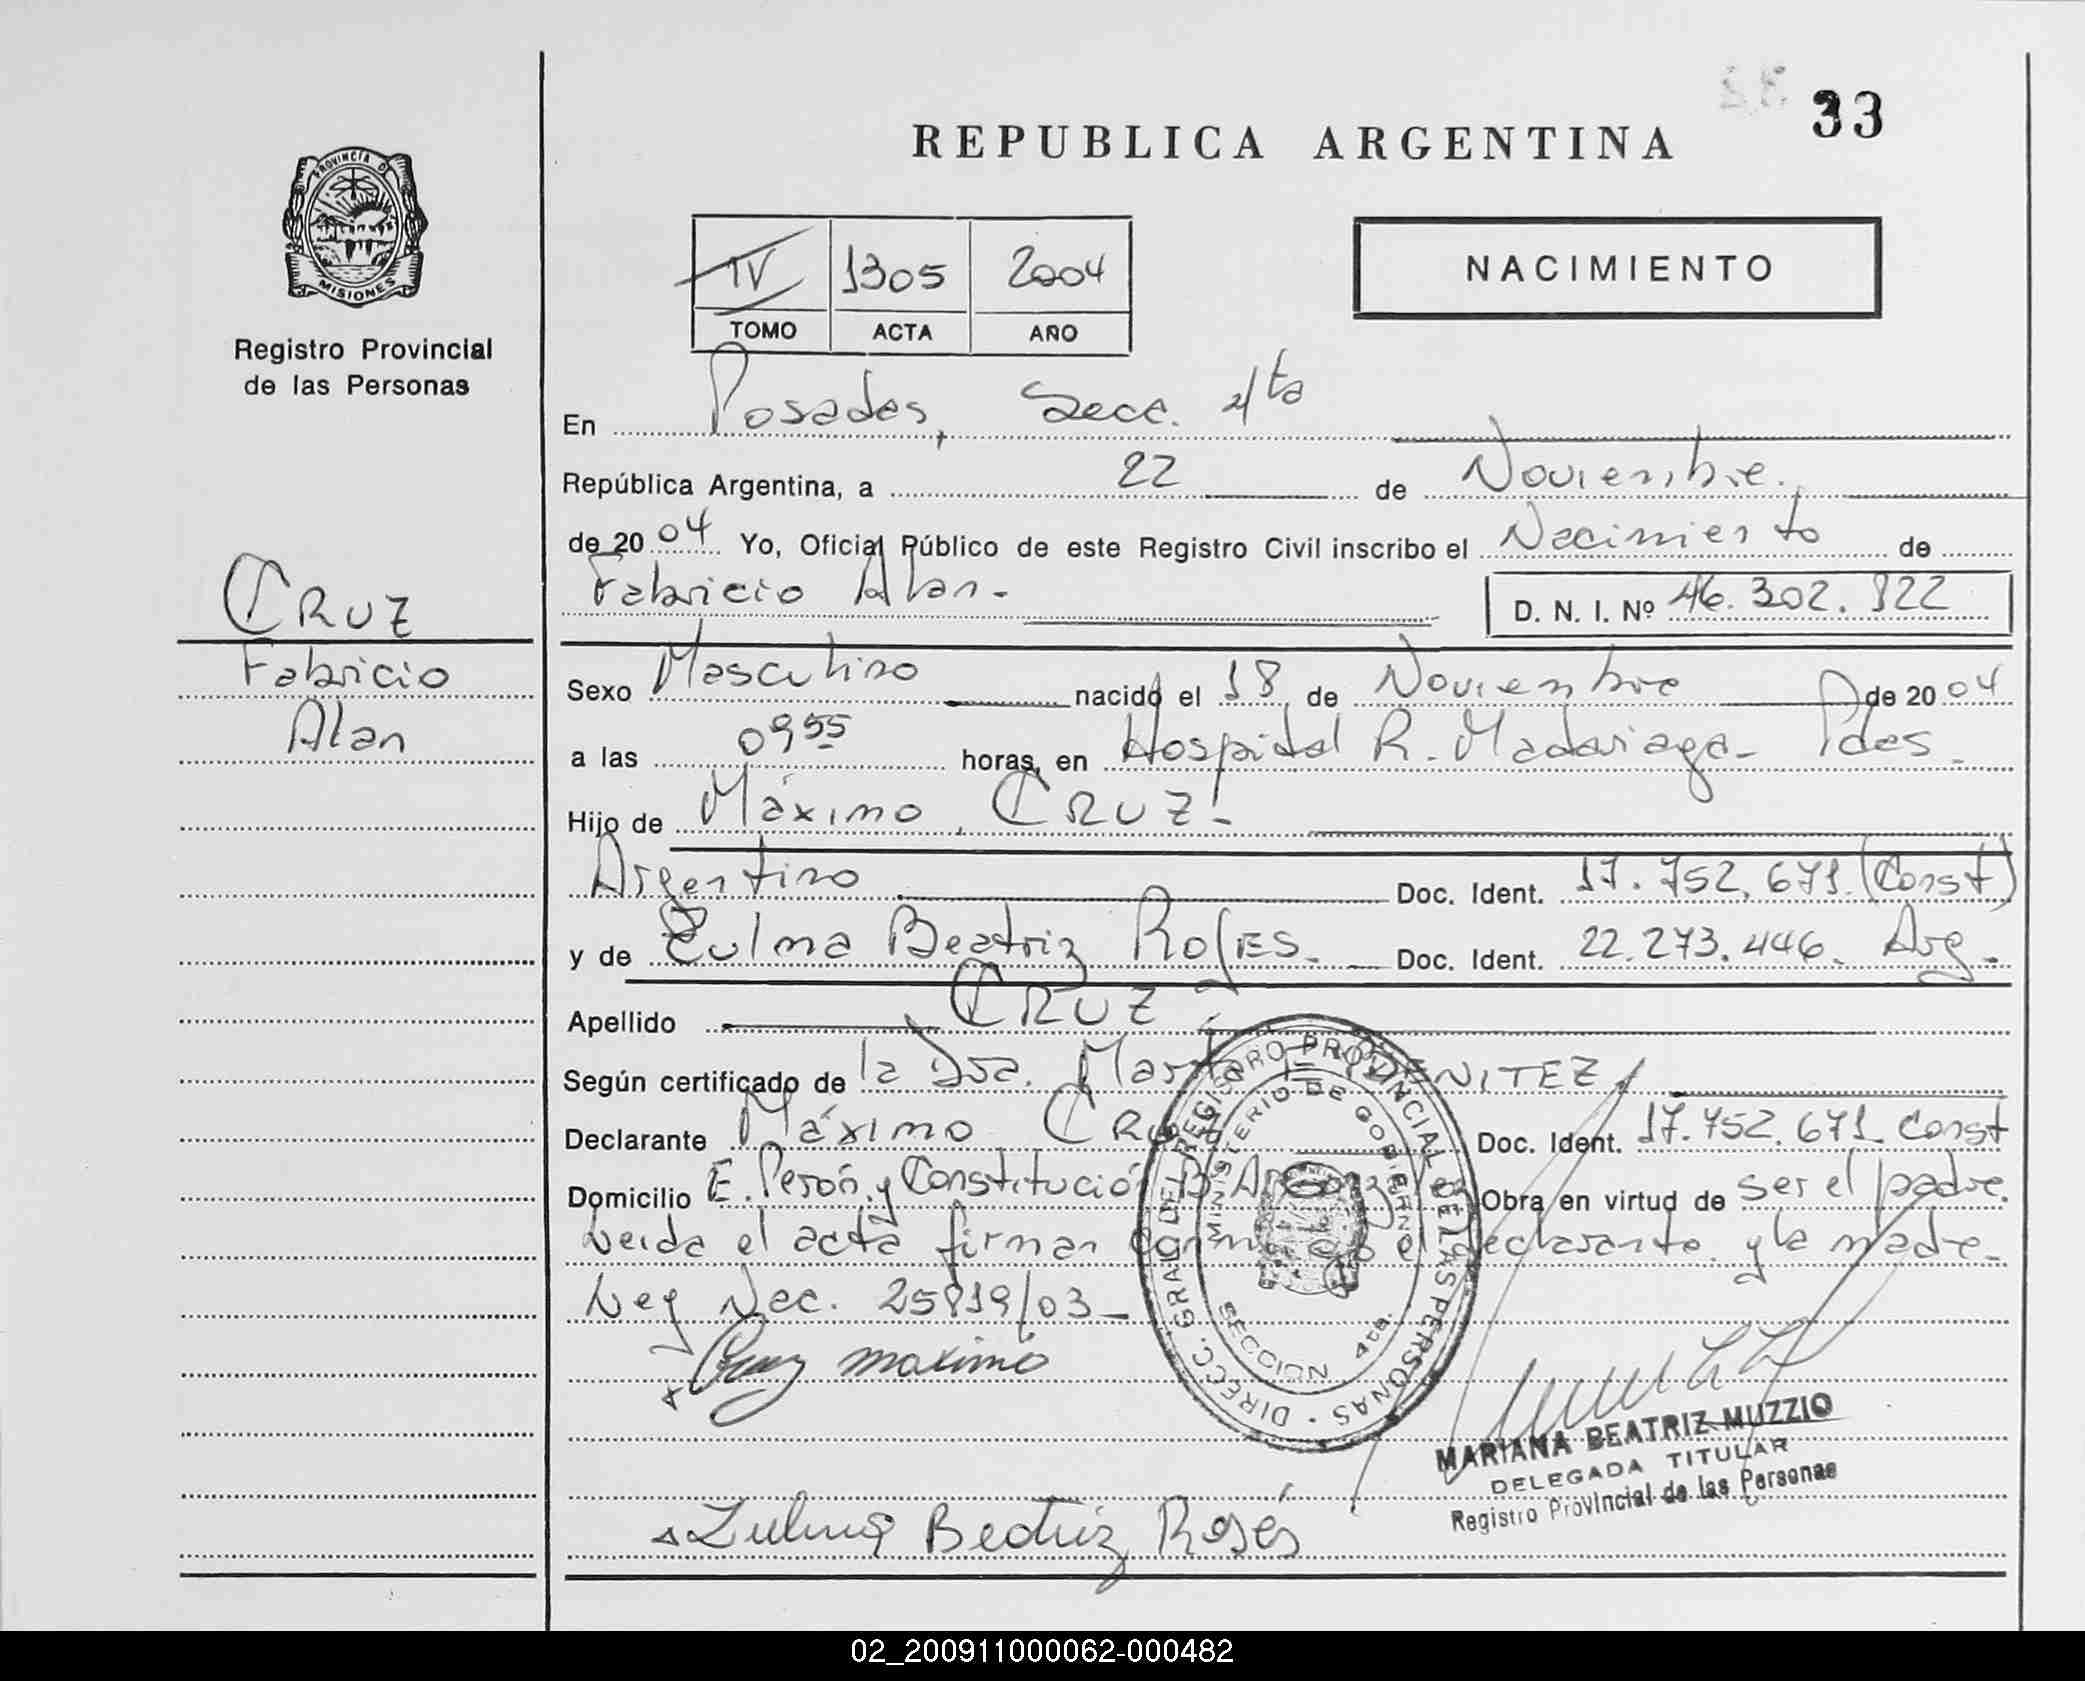 33
REPUBLICA ARGENTINA
PROVINCIA DE
MISIONES
Registro Provincial
de las Personas
IV 1305 2004
TOMO ACTA AÑO
NACIMIENTO
En Posadas, Secc. 4ta
República Argentina, a 22 de Noviembre.
de 2004 Yo, Oficial Público de este Registro Civil inscribo el Nacimiento de
Fabricio Alan.-
D. N. I. Nº 46.302.822
CRUZ
Fabricio
Alan
Sexo Masculino nacido el 18 de Noviembre de 2004
a las 09 55 horas, en Hospital R. Madariaga- Pdas.
Hijo de Máximo CRUZ.-
Argentino Doc. Ident. 17.752.671. (Const)
y de Zulma Beatriz Doc. Ident. 22.273.446. Arg.-
Apellido CRUZ
Según certificado de la Dra. BENITEZ
Declarante Máximo CRUZ Doc. Ident. 17.752.671. Const
Domicilio E. Perón y Constitución Bº Obra en virtud de ser el padre.
Leida el acta firman conmigo el declarante y la madre-
Leg Nac. 25819/03-
Cruz maximo
DIRECC. GRAL DEL REGISTRO PROVINCIAL DE LAS PERSONAS
MINISTERIO DE GOBIERNO
SECCION 4ta.
MARIANA BEATRIZ MUZZIO
DELEGADA TITULAR
Registro Provincial de las Personas
Zulma Beatriz
02_200911000062-000482